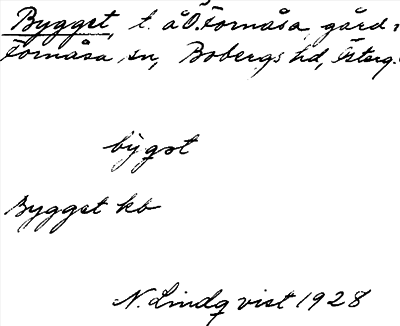 Bygget, t. å Ö. Fornåsa gård,
Fornåsa sn, Bobergs hd, Österg.
bỳgǝt
Bygget kb
N. Lindqvist 1928